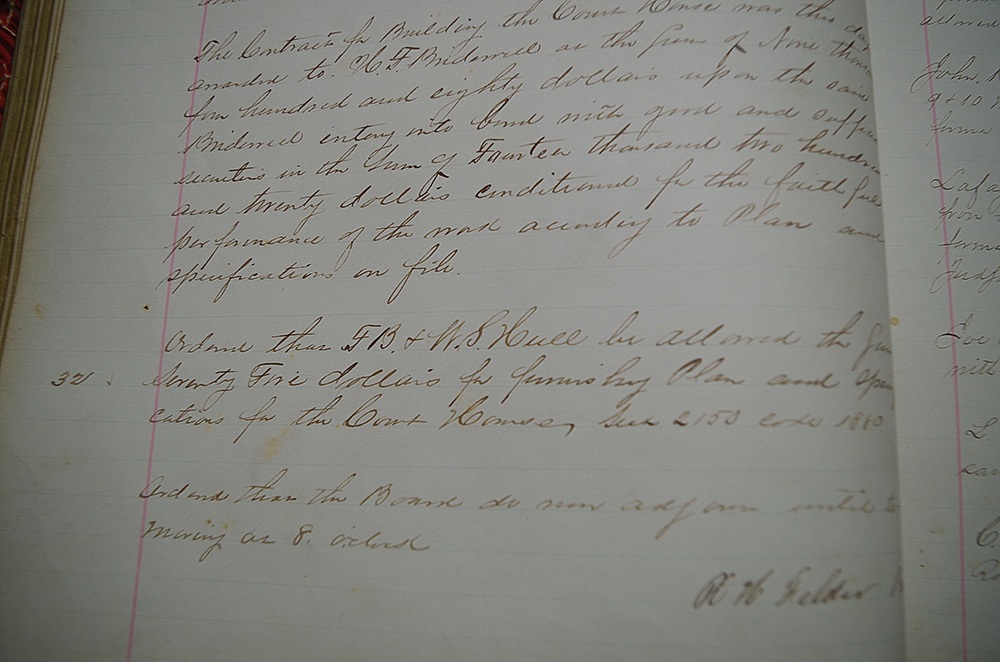 The Contract for Building the Court House was this day
awarded to W. F. Bridewell at the sum of Nine thousand
four hundred and eighty dollars upon the said
Bridewell entering into bond with good and suffici
securities in the sum of Fourteen thousand two hundred
and twenty dollars conditioned for the faithful
performance of the work according to Plan and
specifications on file.
Ordered that F B. & W. S. Hull be allowed the Sum
32 Seventy Five dollars for furnishing Plan and speci
cations for the Court House, Sect 2150 code 1880
Ordered that the Board do now adjourn until to
Morning at 8. oclock
R H Felder
allowed
John.
9 + 10
forma
Lafay
from
forma
Joe
with
L.
C.